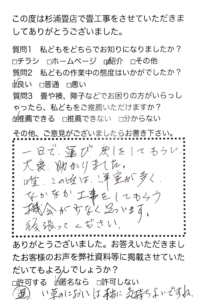 この度は杉浦畳店で畳工事をさせていただきま
してありがとうございました。
質問1 私どもをどちらでお知りになりましたか？
□チラシ □ホームページ □紹介 □その他
質問2 私どもの作業中の態度はいかがでしたか？
□良い □普通 □悪い
質問3 畳や襖、障子などでお困りの方がいらっし
ゃったら、私どもをご推薦いただけますか？
□推薦できる □推薦できない □分からない
その他、ご意見がございましたらお書き下さい。
一日で、運び 戻しをしてもらい
大変 助かりました。
唯、この頃は、洋室が多く
なかなか工事をしてもらう
機会が少なく思います。
頑張ってください。
ありがとうございました。お答えいただきまし
たお客様のお声を弊社資料等に掲載させていた
だいてもよろしでしょうか？
□許可する □匿名なら □許可しない
い草のにおいは 気持ちよいですね